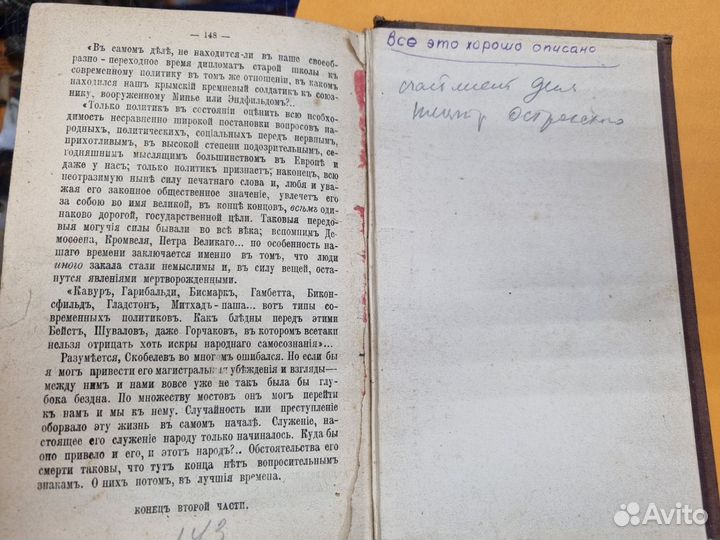 — 148 —
«Въ самомъ дѣлѣ, не находится-ли въ наше своеоб-
разно - переходное время дипломатъ старой школы къ
современному политику въ томъ же отношеніи, въ какомъ
находился нашъ крымскій кремневый солдатикъ къ союз-
нику, вооруженному Минье или Эндфильдомъ?..
«Только политикъ въ состояніи оцѣнить всю необхо-
димость несравненно широкой постановки вопросовъ на-
родныхъ, политическихъ, соціальныхъ передъ нервнымъ,
прихотливымъ, въ высокой степени подозрительнымъ, се-
годняшнимъ мыслящимъ большинствомъ въ Европѣ и
даже у насъ; только политикъ признаетъ; наконецъ, всю
неотразимую нынѣ силу печатнаго слова и, любя и ува-
жая его законное общественное значеніе, увлечетъ его
за собою во имя великой, въ концѣ концовъ, всѣмъ оди-
наково дорогой, государственной цѣли. Таковыя передо-
выя могучія силы бывали во всѣ вѣка; вспомнимъ Де-
мосѳена, Кромвеля, Петра Великаго... но особенность на-
шаго времени заключается именно въ томъ, что люди
иного закала стали немыслимы и, въ силу вещей, оста-
нутся явленіями мертворожденными.
«Кавуръ, Гарибальди, Бисмаркъ, Гамбетта, Бикон-
сфильдъ, Гладстонъ, Митхадъ-паша... вотъ типы со-
временныхъ политиковъ. Какъ блѣдны передъ этими
Бейстъ, Шуваловъ, даже Горчаковъ, въ которомъ всетаки
нельзя отрицать хоть искры народнаго самосознанія»...
Разумѣется, Скобелевъ во многомъ ошибался. Но если бы
я могъ привести его магистральныя убѣжденія и взгляды—
между нимъ и нами вовсе уже не такъ была бы глу-
бока бездна. По множеству мостовъ онъ могъ перейти
къ намъ и мы къ нему. Случайность или преступленіе
оборвало эту жизнь въ самомъ началѣ. Служеніе, на-
стоящее его служеніе народу только начиналось. Куда бы
оно привело и его, и этотъ народъ?.. Обстоятельства его
смерти таковы, что тутъ конца нѣтъ вопросительнымъ
знакамъ. О нихъ потомъ, въ лучшія времена.
КОНЕЦЪ ВТОРОЙ ЧАСТИ.
143
Все это хорошо описано
для
Avito